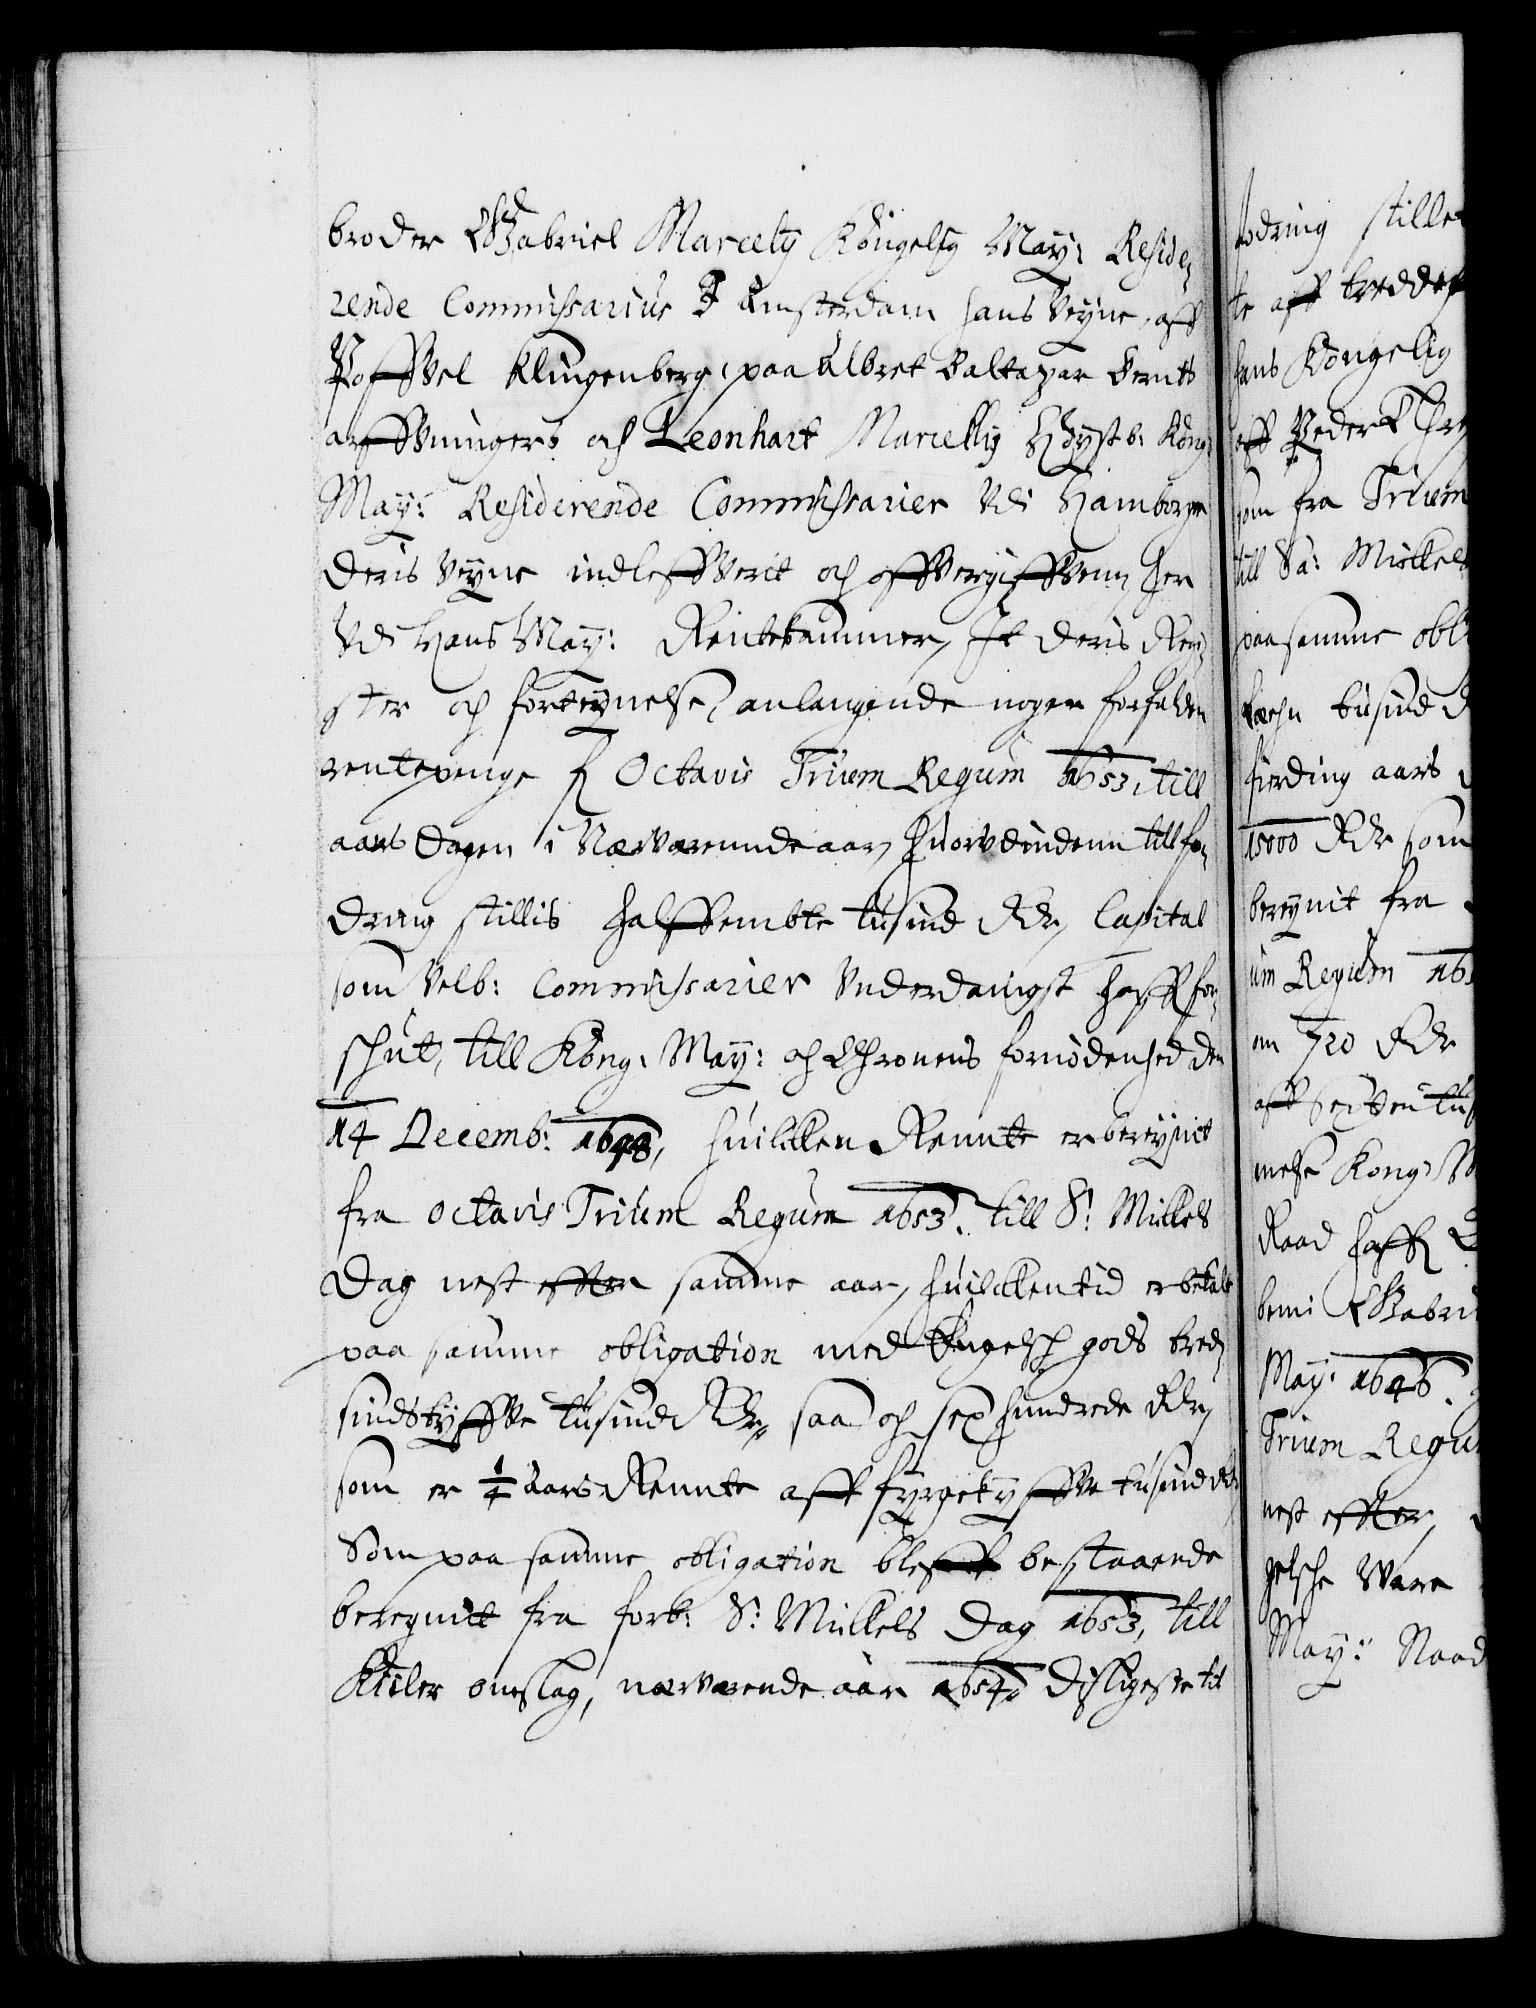 broder Gabriel Marcely Kongelig May: Reside,
rende Commissarius I Amsterdam hans Vegne, aff
Poffvel Klingenberg, paa Albret Baltazar Bernts
arffvingers och Leonhart Marcelly Høystb: Kong:
May: Residerende Commissarier Udi Hamborgr
deris Vegne indleffverit och offvergiffvenn her
Udi Hans May: Rentekammer, It deris Regi,
ster och forteynelse, anlangende nogen forfalden
rentepenge fra Octavis Trium Regum 1653, till
aars dagen i Nærværennde aar, huorudindenn till fo,
dring stillis halffembte tusind Rdr, Capital
som Velb: Commissarier Underdanigst haffr for,
schut, till Kong: May: och Chronens fornødenhed den
14 Decemb: 1648, huilcken Rennte er bereynit
fra Octavis Trium Regum 1653. till S: Mickels
dag nest effter samme aar, huilcken tid er betalt
paa samme obligation med Engelsch gods tred,
sindstyffve tusind Rdr, saa och sex hundrede Rdr,
som er 1/4 aars Rennte aff fyrgetyffve tusind Rdr,
Som paa samme obligation bleff bestaaende
beregnitt fra forb: S: Mickels dag 1653, till
Kiiler omslag, nærværende aar 1654. disligeste til
fodring stillet
te aff tredde
hans Kongelig
aff Peder
som fra Trium
till Sa: Mickels
paa samme obli
tusind
fierding aars
15000 Rdr som
bereynit fra
um Regum 165
720 Rdr
aff
Kong: M
Raad haffr
bem: Gabri
May: 1646.
Trium Regu
nest effter,
gelsche Ware
May: Naad